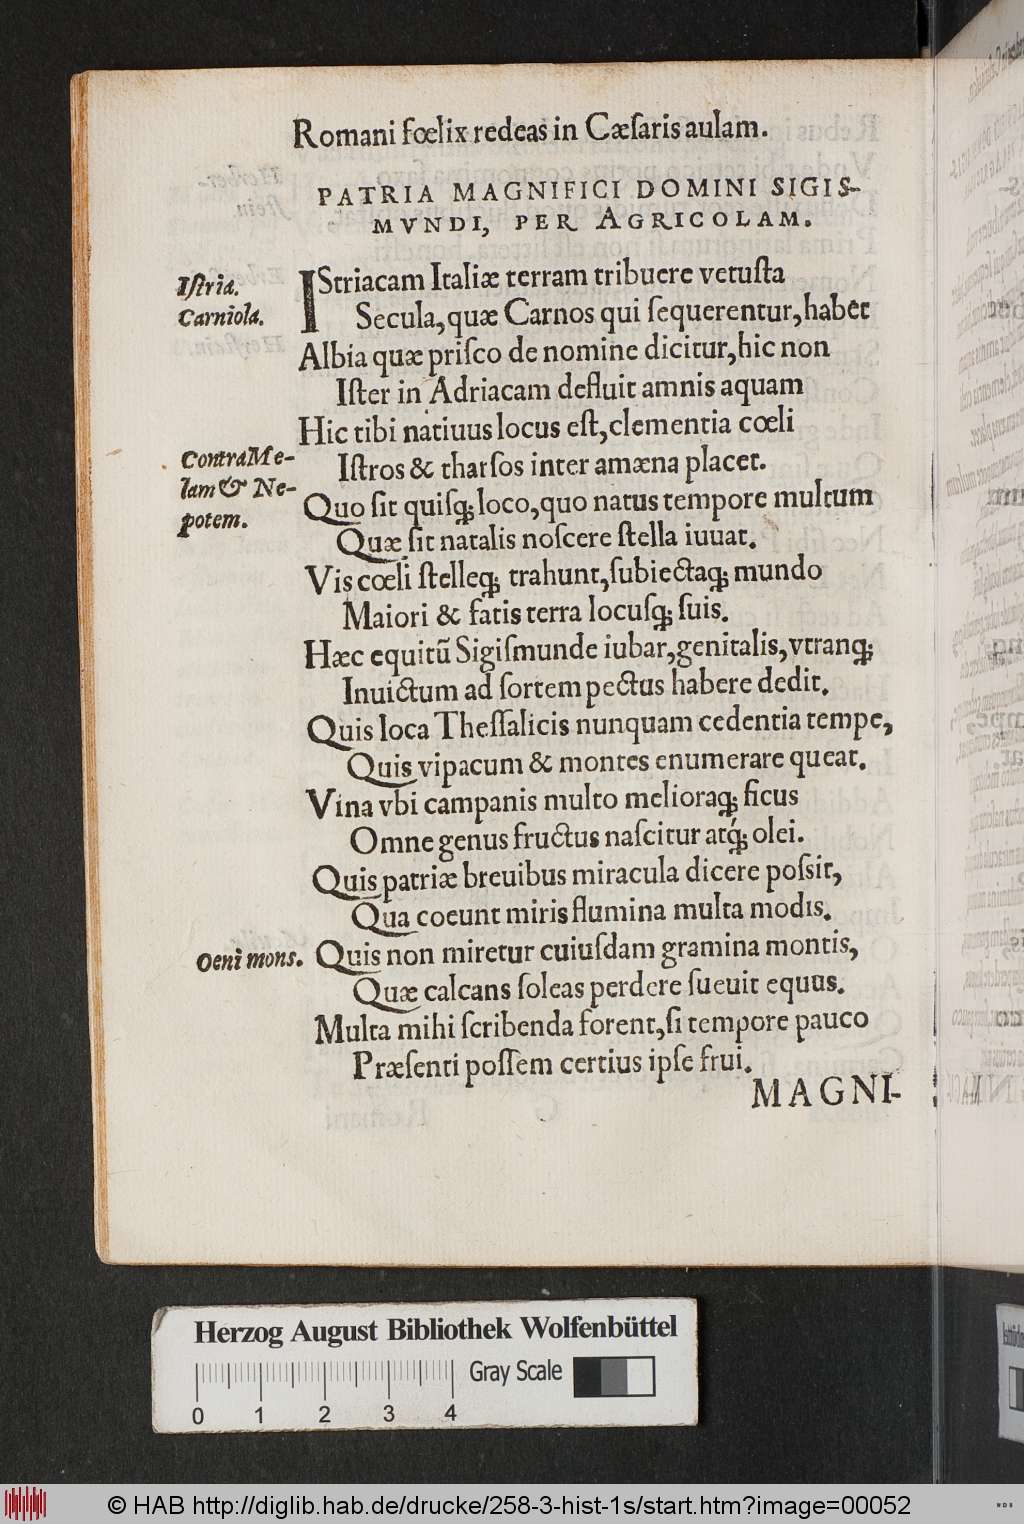 Romani fœlix redeas in Cæſaris aulam.
PATRIA MAGNIFICI DOMINI SIGIS-
MVNDI, PER AGRICOLAM.
Iſtria.
Carniola.
IStriacam Italiæ terram tribuere vetuſta
Secula, quæ Carnos qui ſequerentur, habet
Albia quæ priſco de nomine dicitur, hic non
Iſter in Adriacam defluit amnis aquam
Hic tibi natiuus locus eſt, clementia cœli
Contra Me-
lam & Ne-
potem.
Iſtros & tharſos inter amæna placet.
Quo ſit quiſq; loco, quo natus tempore multum
Quæ ſit natalis noſcere ſtella iuuat.
Vis cœli ſtelleq; trahunt, ſubiectaq; mundo
Maiori & fatis terra locuſq; ſuis.
Hæc equitũ Sigiſmunde iubar, genitalis, vtranq;
Inuictum ad ſortem pectus habere dedit.
Quis loca Theſſalicis nunquam cedentia tempe,
Quis vipacum & montes enumerare queat.
Vina vbi campanis multo melioraq; ficus
Omne genus fructus naſcitur atq́; olei.
Quis patriæ breuibus miracula dicere poſsit,
Qua coeunt miris flumina multa modis.
Oeni mons.
Quis non miretur cuiuſdam gramina montis,
Quæ calcans ſoleas perdere ſueuit equus.
Multa mihi ſcribenda forent, ſi tempore pauco
Præſenti poſſem certius ipſe frui.
MAGNI-
Herzog August Bibliothek Wolfenbüttel
Gray Scale
0 1 2 3 4
© HAB http://diglib.hab.de/drucke/258-3-hist-1s/start.htm?image=00052